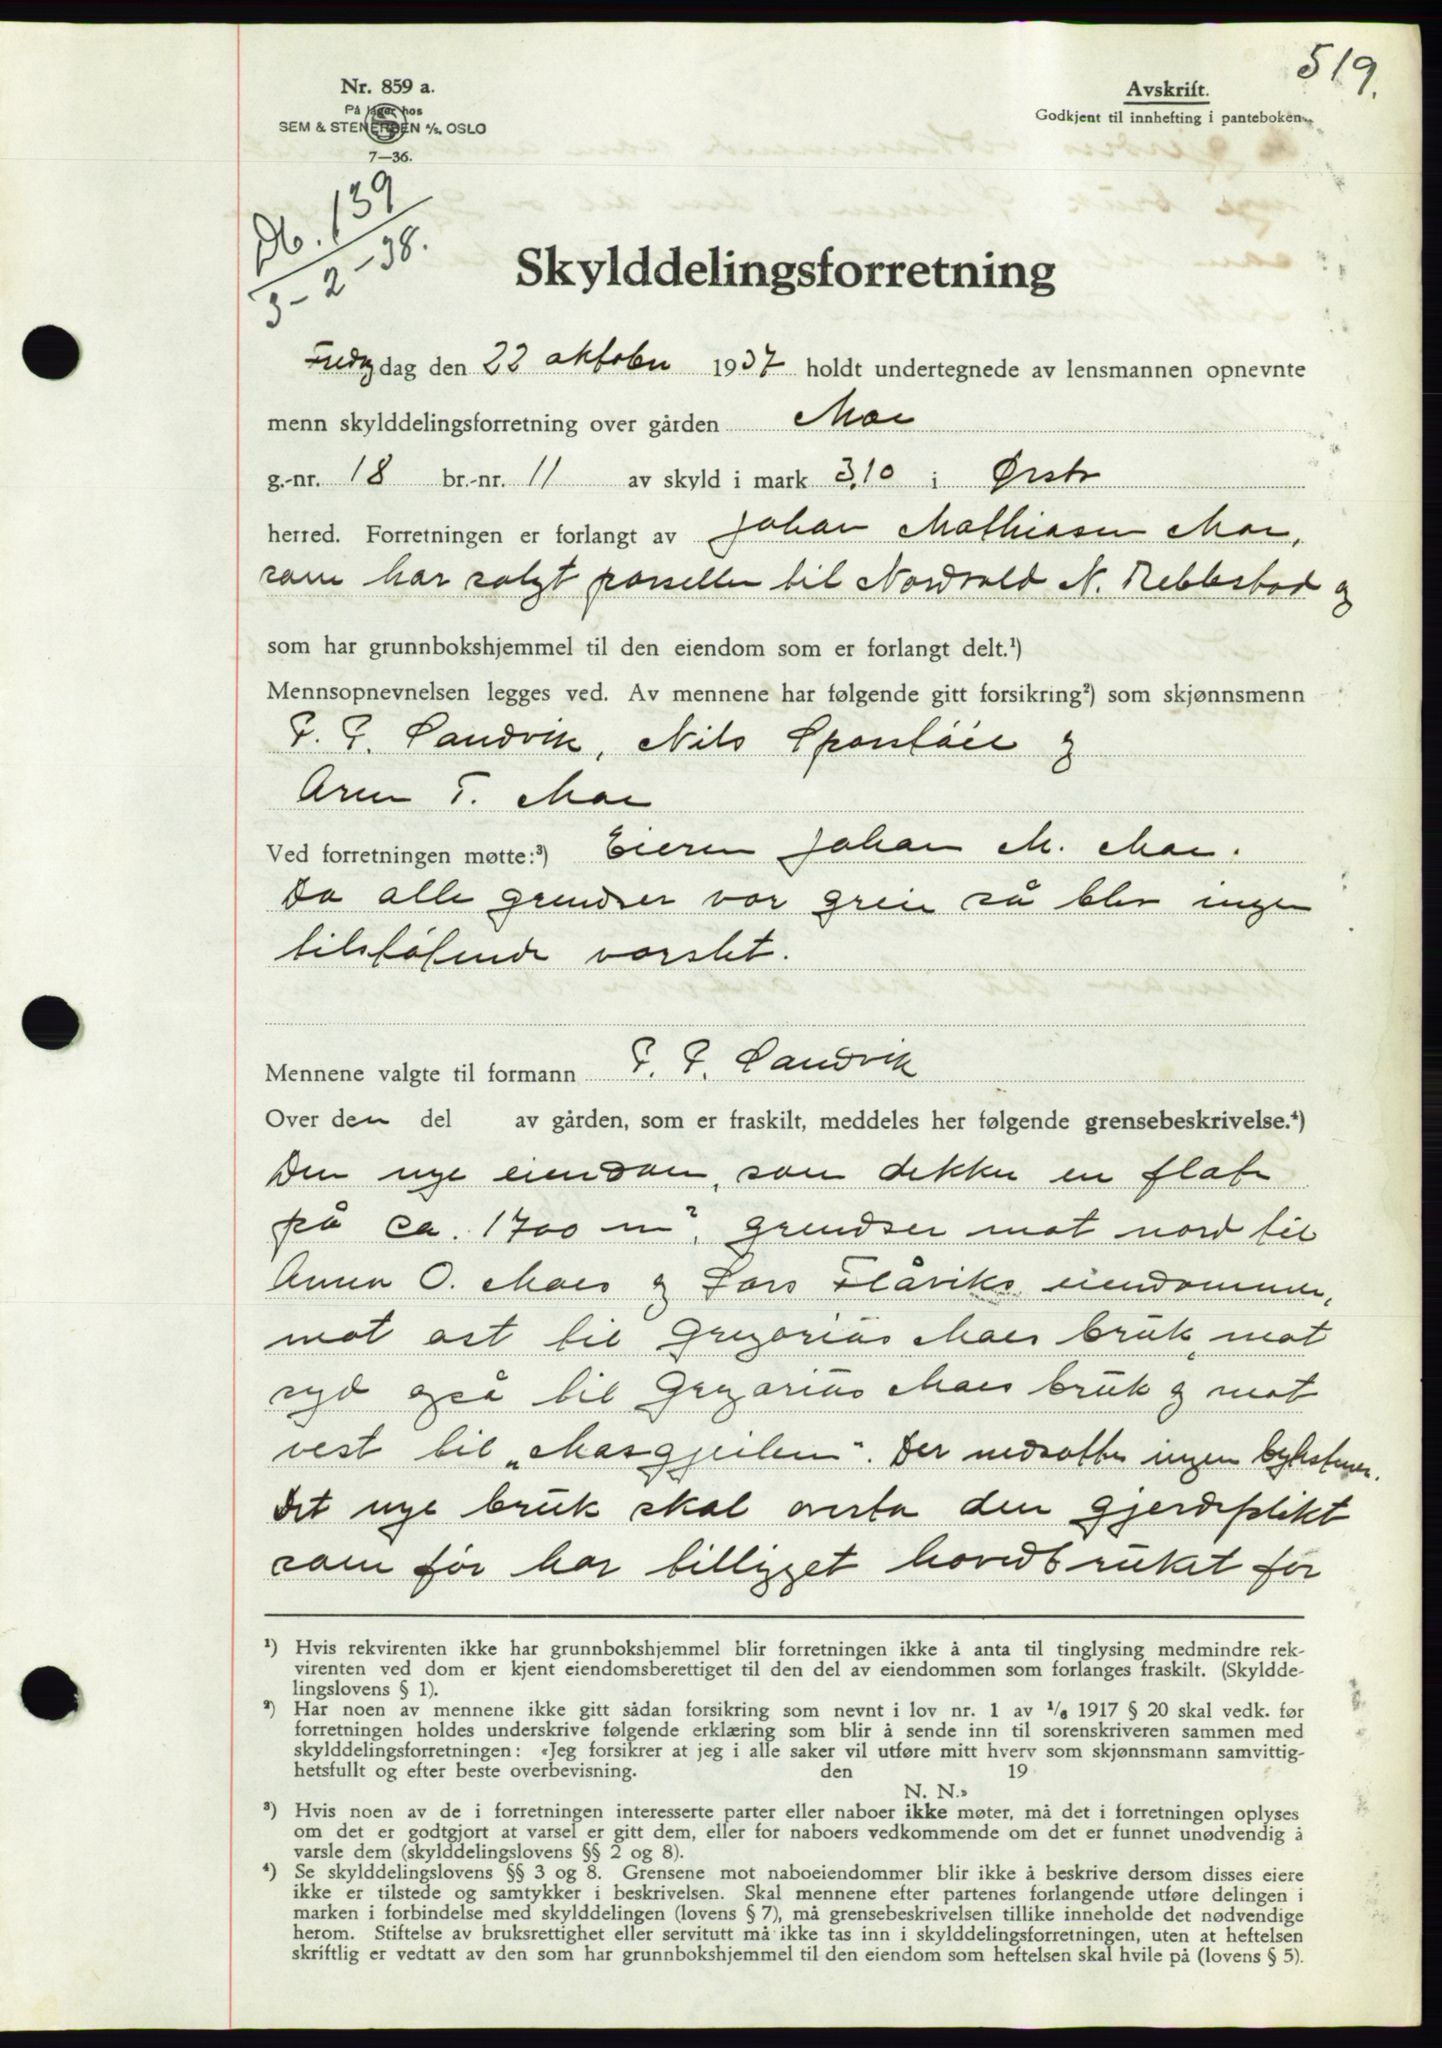 519.
Nr. 859 a.
På lager hos
SEM & STENERSEN A/S. OSLO
7—36.
Avskrift.
Godkjent til innhefting i panteboken
Db. 139
3-2-38.
Skylddelingsforretning
Fredag dag den 22 oktober 1937 holdt undertegnede av lensmannen opnevnte
menn skylddelingsforretning over gården Moe
g.-nr. 18 br.-nr. 11 av skyld i mark 3,10 i Ørsta
herred. Forretningen er forlangt av Johan Mathiasen Moe,
som har solgt parsellen til Nordvald N. Rebbestad og
som har grunnbokshjemmel til den eiendom som er forlangt delt.¹)
Mennsopnevnelsen legges ved. Av mennene har følgende gitt forsikring²) som skjønnsmenn
P. P. Sandvik, Nils Sporstøil og
Aren T. Moe
Ved forretningen møtte:³) Eieren Johan M. Moe.
Da alle grendser var greie så blev ingen
tilstøtende varslet.
Mennene valgte til formann P. P. Sandvik
Over den del av gården, som er fraskilt, meddeles her følgende grensebeskrivelse.⁴)
Den nye eiendom, som dekker en flate
på ca. 1700 m², grendser mot nord til
Anna O. Moes og Lars Flåviks eiendommer,
mot ost til Gregorius Moes bruk, mot
syd også til Gregorius Moes bruk og mot
vest til „Moegjeilen". Der nedsattes ingen bytestener.
Det nye bruk skal overta den gjerdeplikt
som før har tilligget hovedbruket for
¹) Hvis rekvirenten ikke har grunnbokshjemmel blir forretningen ikke å anta til tinglysing medmindre rek-
virenten ved dom er kjent eiendomsberettiget til den del av eiendommen som forlanges fraskilt. (Skyldde-
lingslovens § 1).
²) Har noen av mennene ikke gitt sådan forsikring som nevnt i lov nr. 1 av ¹/₆ 1917 § 20 skal vedk. før
forretningen holdes underskrive følgende erklæring som blir å sende inn til sorenskriveren sammen med
skylddelingsforretningen: «Jeg forsikrer at jeg i alle saker vil utføre mitt hverv som skjønnsmann samvittig-
hetsfullt og efter beste overbevisning. den 19
N. N.»
³) Hvis noen av de i forretningen interesserte parter eller naboer ikke møter, må det i forretningen oplyses
om det er godtgjort at varsel er gitt dem, eller for naboers vedkommende om det er funnet unødvendig å
varsle dem (skylddelingslovens §§ 2 og 8).
⁴) Se skylddelingslovens §§ 3 og 8. Grensene mot naboeiendommer blir ikke å beskrive dersom disses eiere
ikke er tilstede og samtykker i beskrivelsen. Skal mennene efter partenes forlangende utføre delingen i
marken i forbindelse med skylddelingen (lovens § 7), må grensebeskrivelsen tillike inneholde det nødvendige
herom. Stiftelse av bruksrettighet eller servitutt må ikke tas inn i skylddelingsforretningen, uten at heftelsen
skriftlig er vedtatt av den som har grunnbokshjemmel til den eiendom som heftelsen skal hvile på (lovens § 5).